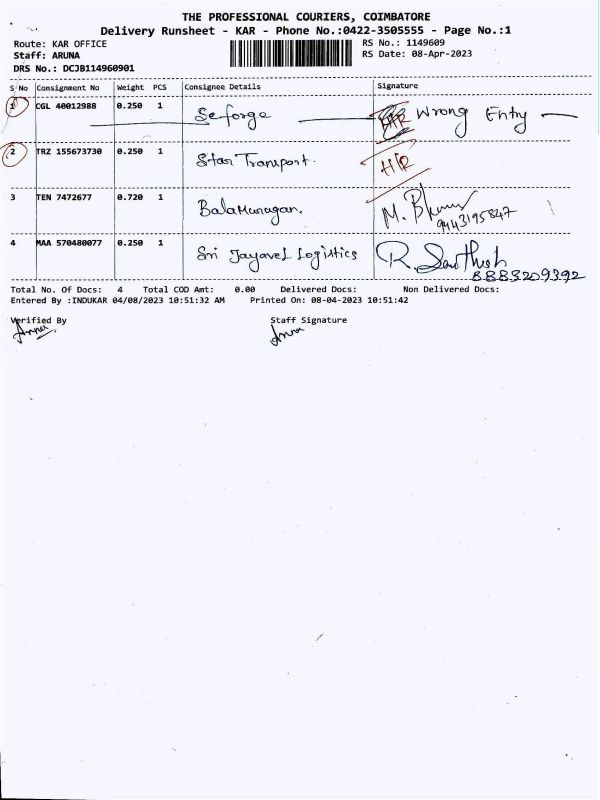 THE PROFESSIONAL COURIERS, COIMBATORE
Delivery Runsheet - KAR - Phone No.:0422-3505555 - Page No.:1
Route: KAR OFFICE
RS No.: 1149609
Staff: ARUNA
RS Date: 08-Apr-2023
DRS No.: DCJB114960901
S No Consignment No Weight PCS Consignee Details Signature
1 CGL 40012988 0.250 1 Seforge Wrong Entry
2 TRZ 155673730 0.250 1 Star Transport. H/R
3 TEN 7472677 0.720 1 BalaMurugan. M.
9443195847
4 MAA 570480077 0.250 1 Sri Jayavel Logistics R. Santhosh
8883209392
Total No. Of Docs: 4 Total COD Amt: 0.00 Delivered Docs: Non Delivered Docs:
Entered By :INDUKAR 04/08/2023 10:51:32 AM Printed On: 08-04-2023 10:51:42
Verified By Staff Signature
Aruna Aruna